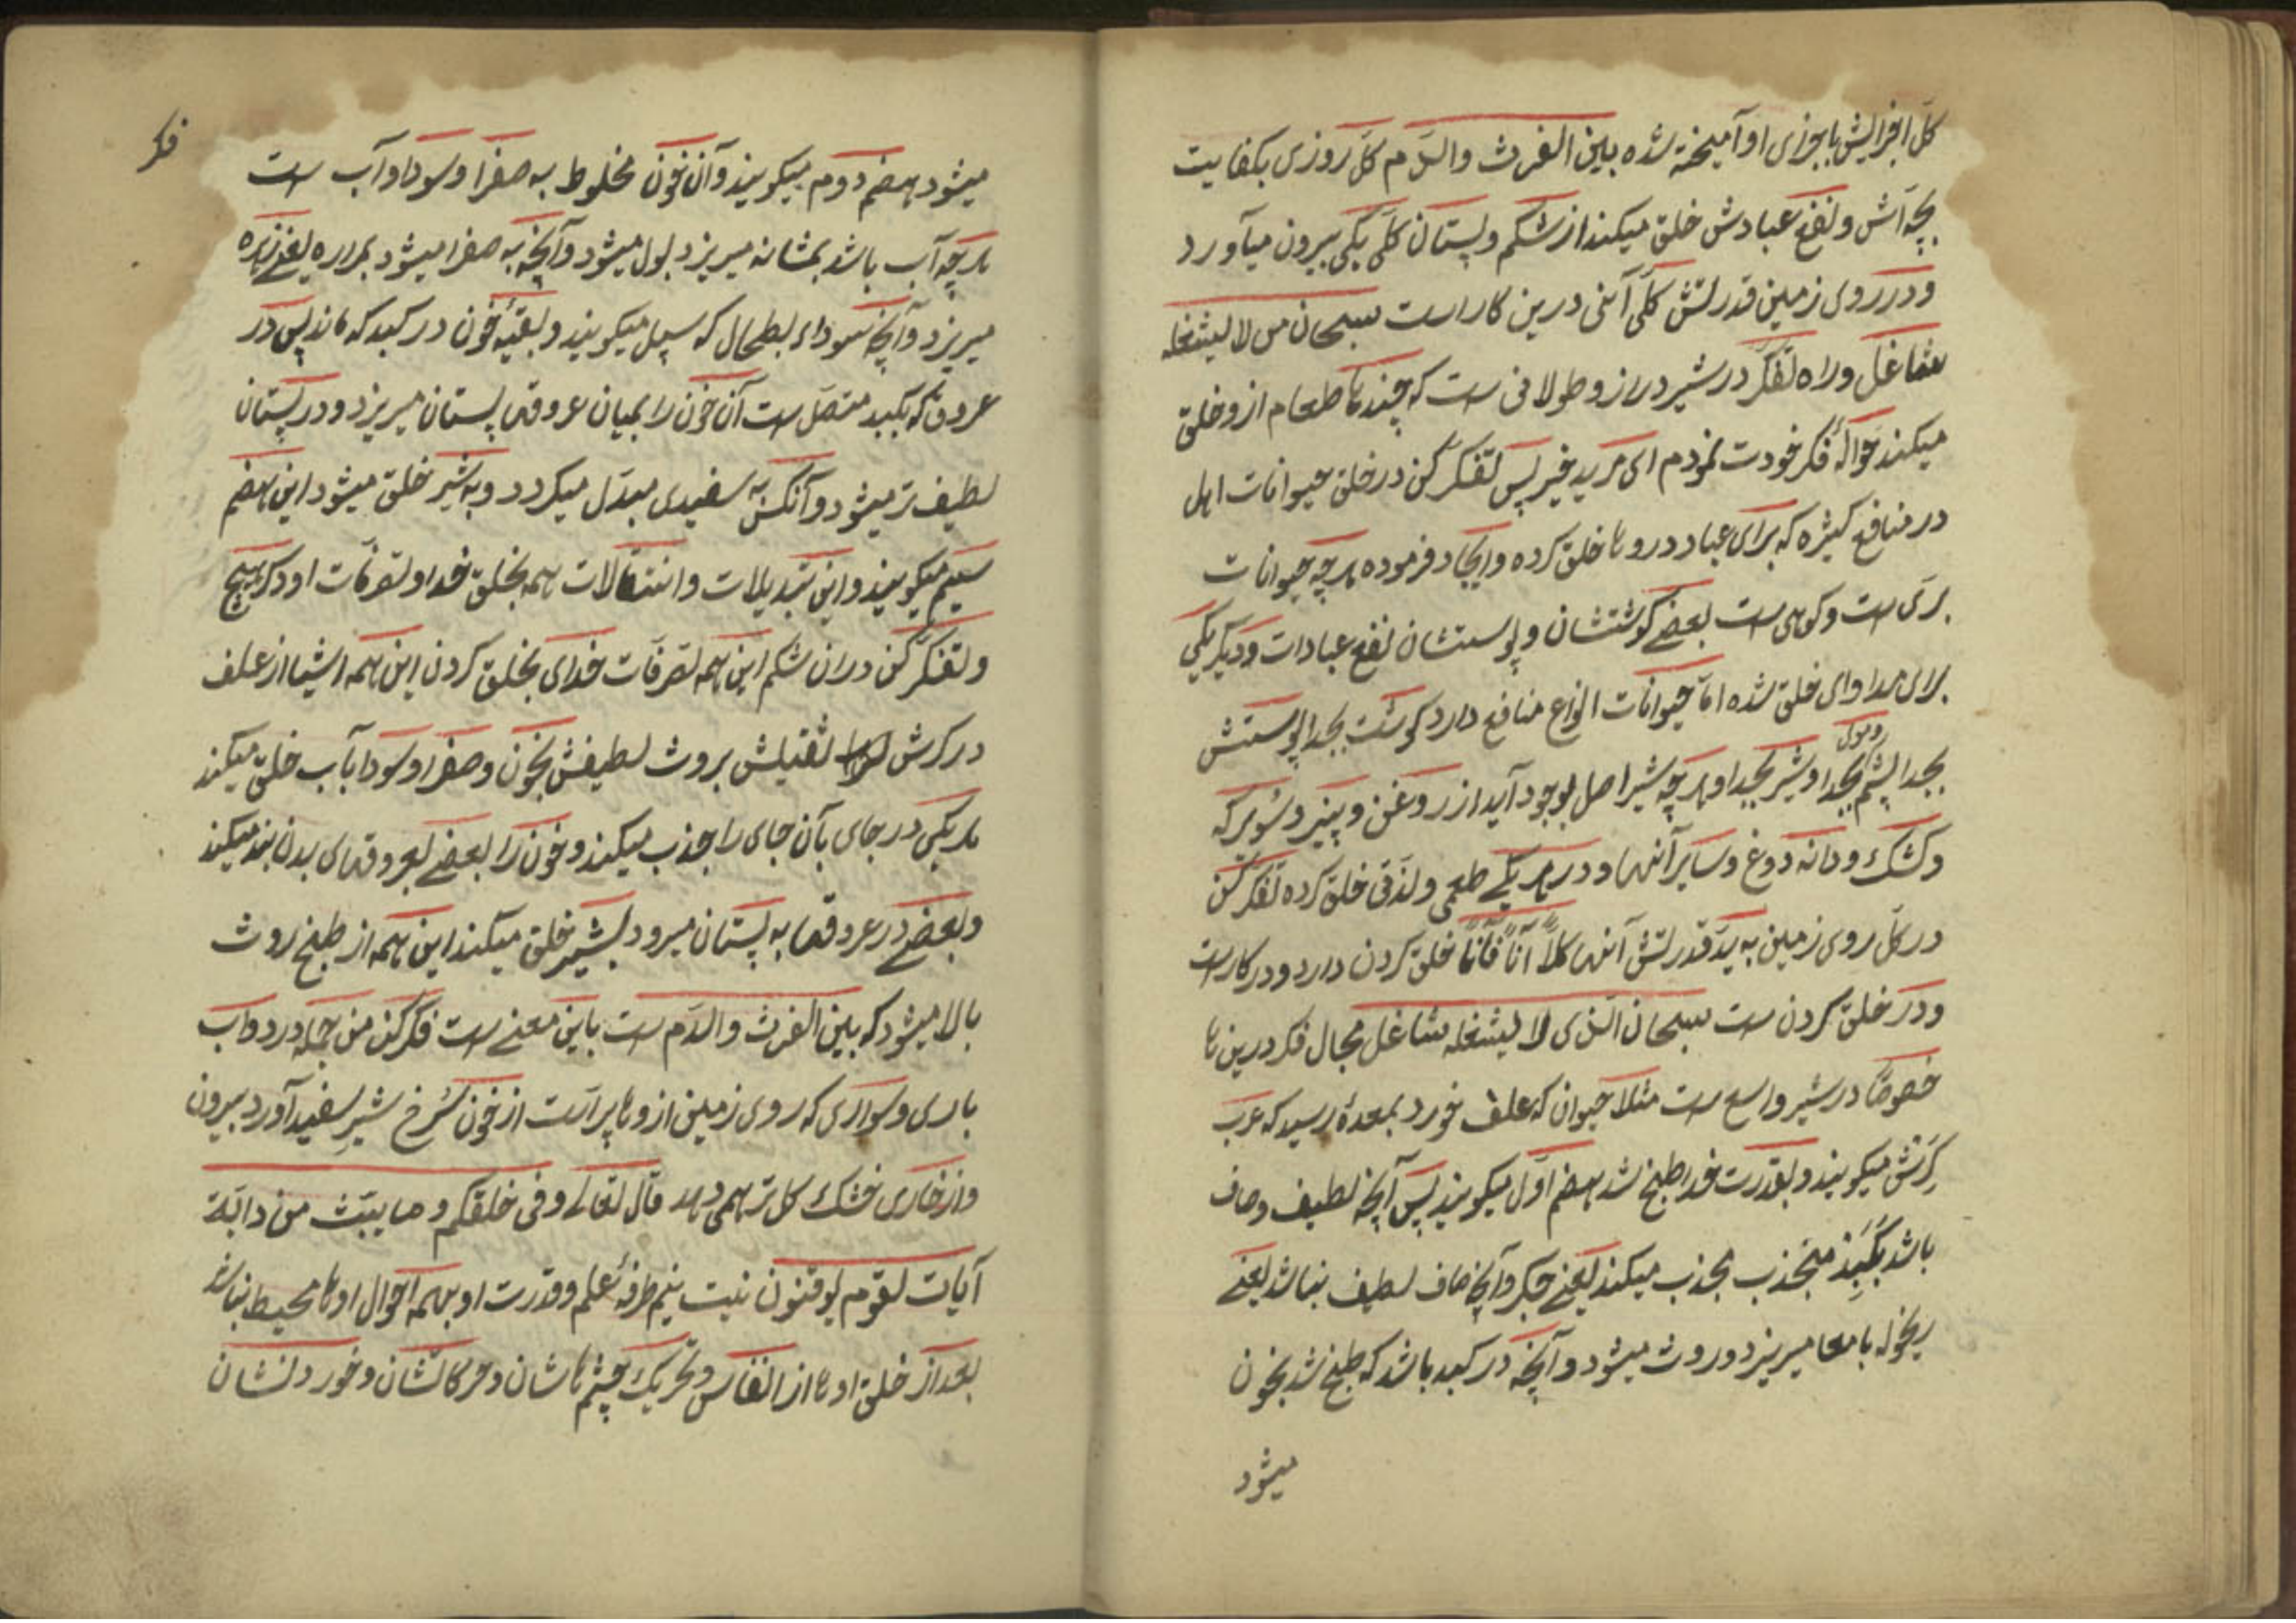 کلّ افزایش با جوزی او آمیخته شده بین الفرث والدّم کلّ روزی بکفایت
بچه‌اش و نفع عبادش خلق میکند از شکم و پستان کلّی یکی بیرون میآورد
و در روی زمین قدرتش کلّی آنی درین کار است سبحان من لا یشغله
شاغل و راه تفکّر در شیر دراز و طولانی ست که چند تا طعام ازو خلق
میکند حوالهٔ فکر خودت نمودم ای مرید خیر پس تفکّر کن در خلق حیوانات اهل
در منافع کثیره که برای عباد درو تا خلق کرده و ایجاد فرموده هر چه حیوانات
برّی ست و کوهی ست بعضی گوشتشان و پوستشان نفع عبادات و دیگر یکی
برای مداوای خلق شده امّا حیوانات انواع منافع دارد گوشت بجدا پوستش
بجدا پشم بجدا و شیر بجدا و هر چه شیر اصل بوجود آید از روغن و پنیر و شویر که
و کشک و دانه دوغ و سایر آنها و در هر یکی طعمی و لذّتی خلق کرده تفکّر کن
در کلّ روی زمین به ید قدرتش آنها کلاً آناً فآناً خلق کردن دارد و در کار است
و در خلق کردن ست سبحان الذی لا یشغله شاغل مجال فکر درین تا
خصوصًا در شیر واسع ست مثلا حیوان که علف خورد بمعدهٔ رسید که عرب
کرش میگویند و بقدرت خدا طبخ شد هضم اوّل میگویند پس آنچه لطیف و صاف
باشد بکبد منجذب بجذب میکند یعنی جگر و آنچه صاف لطیف نباشد یعنی
بامعا میریزد و روث میشود و آنچه در کبد باشد که طبخ شد بخون
میشود
فکر
میشود هضم دوم میگویند و آن خون مخلوط به صفرا و سودا و آب ست
هر چه آب باشد بمثانه میریزد بول میشود و آنچه به صفرا میشود بمراره یعنی زهره
میریزد و آنچه سوداء بطحال که سپل میگویند و بقیّهٔ خون در کبد که ماند پس در
عروق که بکبد متصل ست آن خون را بمیان عروقهای پستان میریزد و در پستان
لطیف تر میشود و آنکس به سفیدی مبدّل میگردد و به شیر خلق میشود این هضم
سیم میگویند و این تبدیلات و انتقالات همه بخلق خدا و تصرفات او در هیچ
و تفکّر کن در ان شکم این همه تصرفات خدای بخلق کردن این همه اشیا از علف
در کرش ثقیلش بروث لطیفش بخون و صفرا و سودا بآب خلق میکند
هر یکی در جای بآن جای را جذب میکند و خون را بعضی بعروقهای بدن بند میکند
و بعضی در عروقها به پستان میرود بشیر خلق میکند این همه از طبخ روث
بالا میشود که بین الفرث والدّم ست باین معنی ست فکر کن من جمله در دواب
باری و سواری که روی زمین ازو تا پر است از خون سرخ شیر سفید آورد بیرون
و از خاری خشک کل تر همی دهد قال تعالی و فی خلقکم و ما یبثّ من دابّة
آیات لقوم یوقنون نیت بنیم طرفهٔ علم و قدرت او بهمه احوال او تا محیط نباشد
بعد از خلق او تا از انفاس و تحریک چشم تا شان و حرکاتشان و خوردنشان